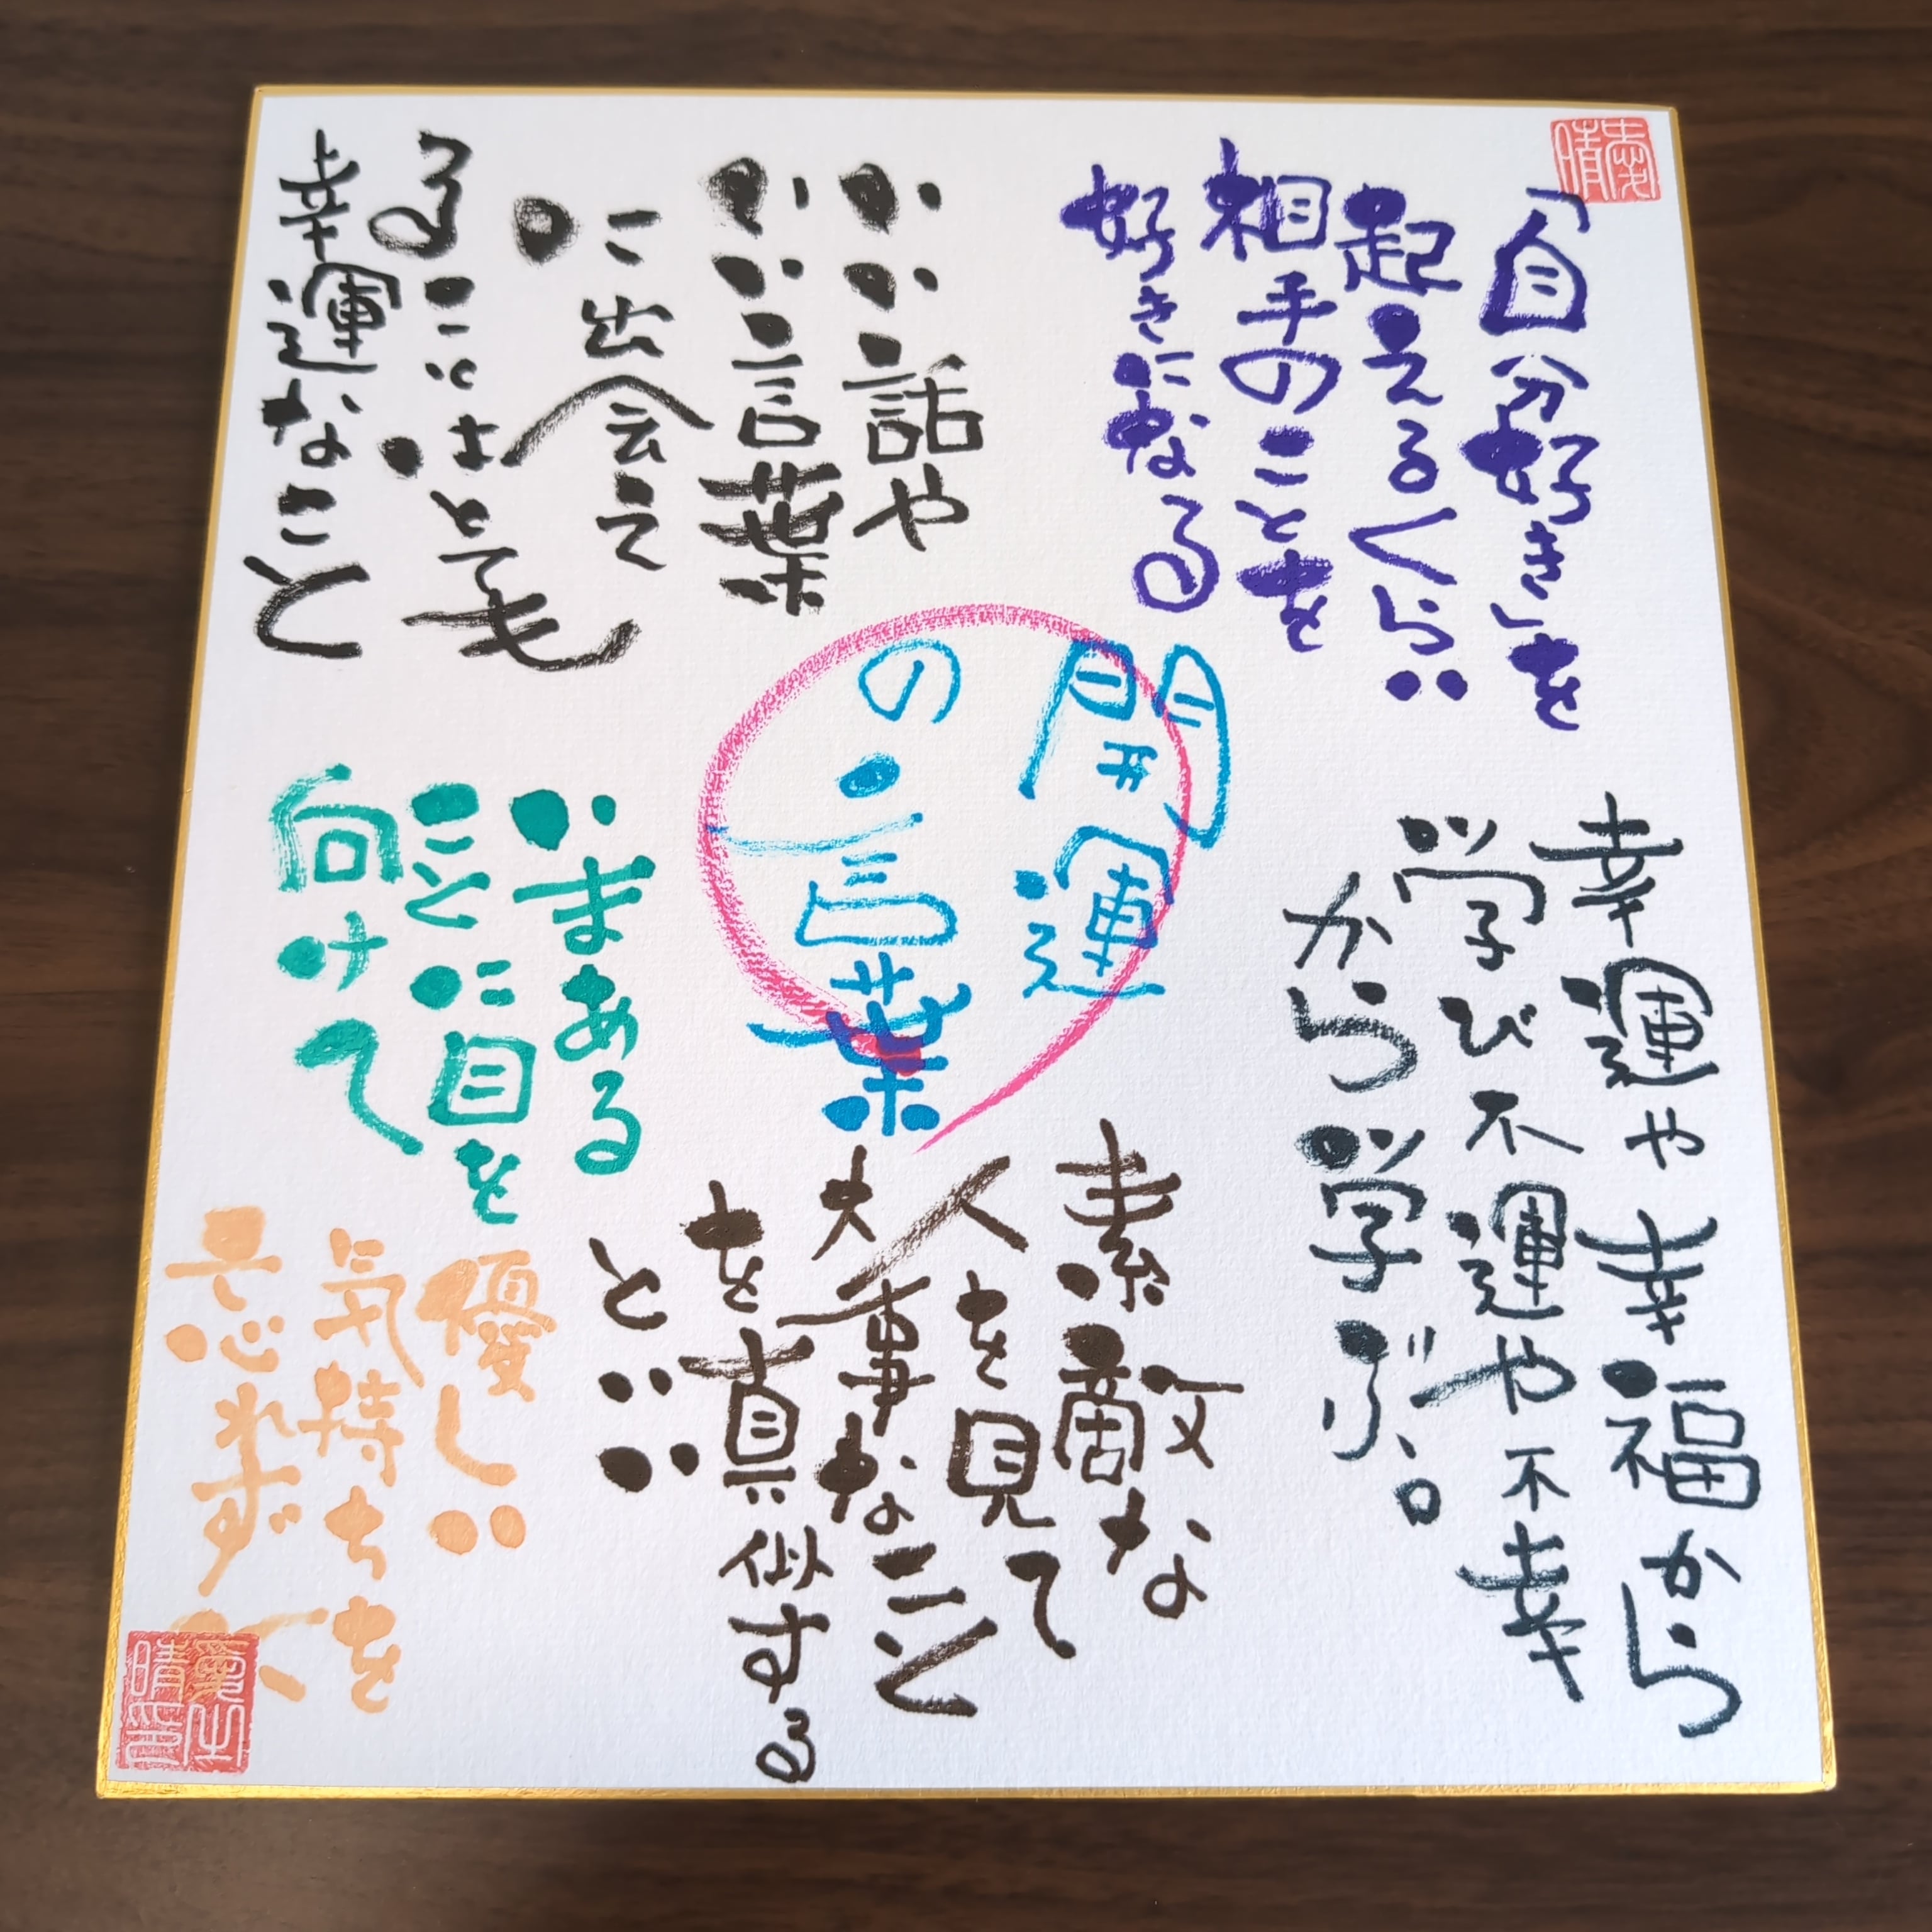 「自分好き」を
起えるくらい
相手のことを
好きになる
いい話や
いい言葉
に出会え
ることはとても
幸運なこと
開運
の言葉
幸運や幸福から
学び不運や不幸
から学ぶ。
素敵な
人を見て
大事なこと
を真似する
といい
いまある
ことに目を
向けて
優しい
気持ちを
忘れずに